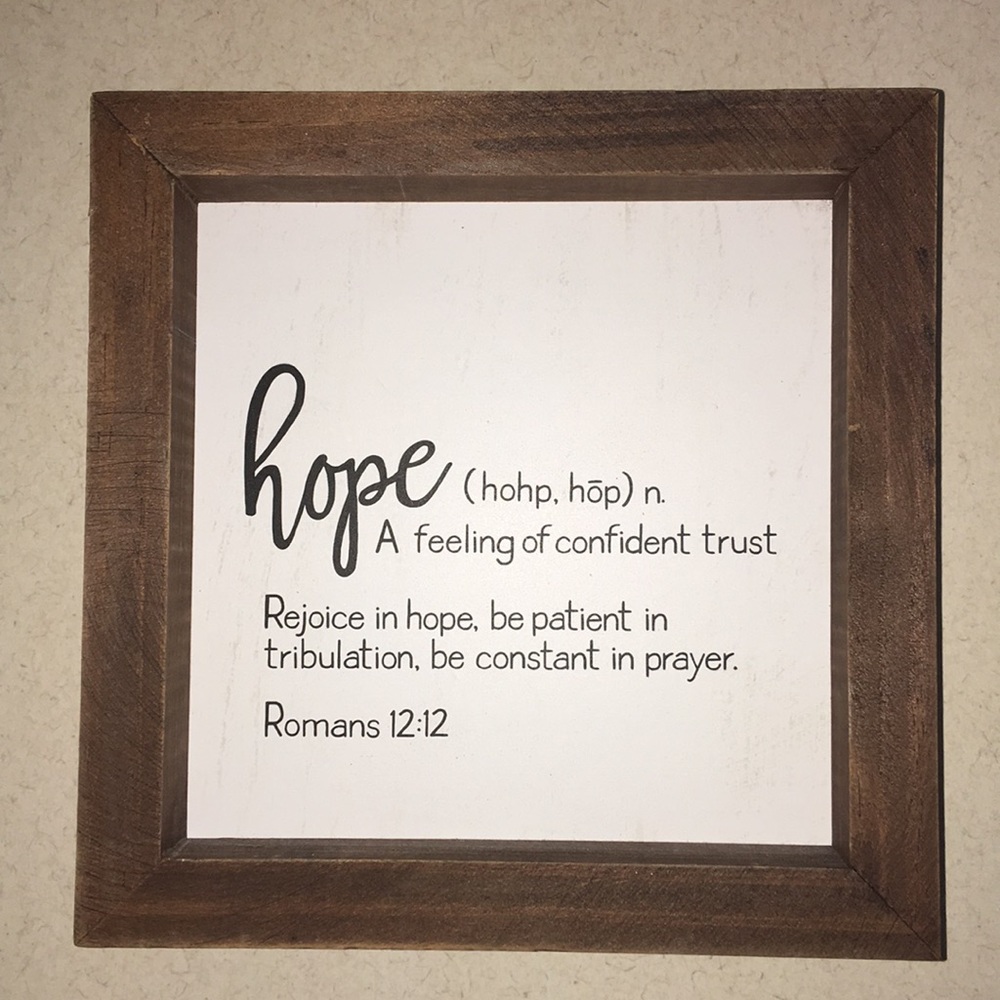 hope (hohp, hōp) n.
A feeling of confident trust
Rejoice in hope, be patient in
tribulation, be constant in prayer.
Romans 12:12